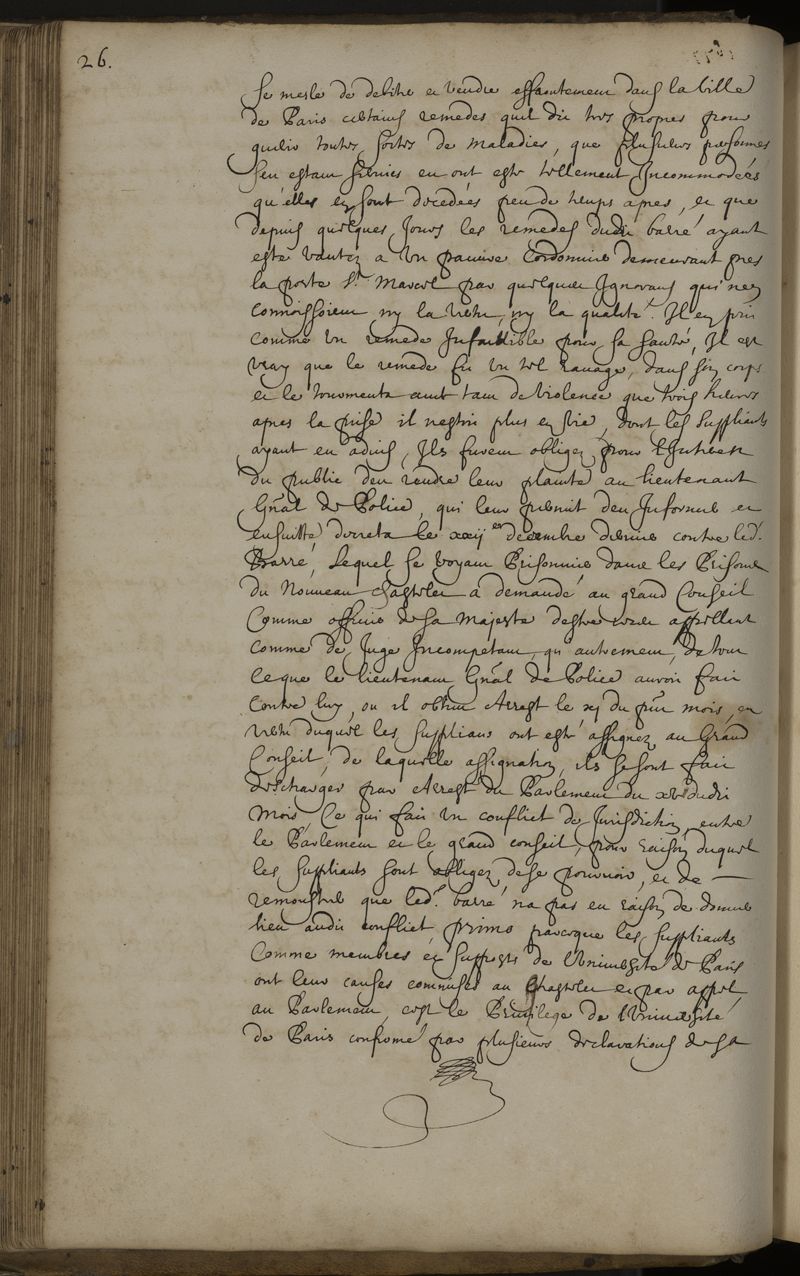 26.
se mesle de debiter et vendre effrontement dans la ville
de Paris certains remedes quil dit tres propres pour
guerir toutes sortes de maladies, que plusieurs personnes
sen estant servies en ont esté tellement Incommodées
qu'elles en sont decedées peu de temps apres, et que
depuis quelques Jours les remedes dudit barré ayant
esté vantez a un pauvre Cordonnier demeurant pres
la porte St Marcel par quelques Ignorans qui n'en
connoissoient ny la vertu, ny la qualité. Il en prit
comme un remede Infaillible pour sa santé, Il est
vray que le remede fit un tel ravage, dans son corps
et le tourmenta avec tant de violence que trois heures
apres la prise il n'estoit plus en vie, dont les Suppliants
ayant eu advis, Ils furent obligez pour l'Interest
du public d'en rendre leur plainte au lieutenant
Gnãl de Police, qui leur permit d'en Informer et
ensuitte decreta le xxij en decembre dernier contre led.
Barré, Lequel se voyant Prisonnier dans les Prisons
du Nouveau chastelet a demandé au grand Conseil
Comme officier de sa Majesté destre receu appellant
comme de Juge Incompetant, qu'autrement, de tout
ce que le lieutenant Gnãl de Police auroit fait
contre luy, ou il obtint Arrest le xj du pñt mois, en
vertu duquel les Supplians ont esté assignez au Grand
Conseil, de laquelle assignation, ils se sont fait
descharger par Arrest du Parlement du xv dudit
mois, Ce qui fait un conflict de Jurisdiction, entre
le Parlement et le grand conseil, pour raison duquel
les Suppliants sont obligez de se pourvoir, et de
remonstrer que led. barré n'a pas eu raison de donner
lieu audit conflict, primo parceque les Suppliants
Comme membres et Supposts de l'Université de Paris
ont leur causes commises au Chastelet et par appel
au Parlement, cest le Privilege de l'Université
de Paris confirmé par plusieurs declarations de sa